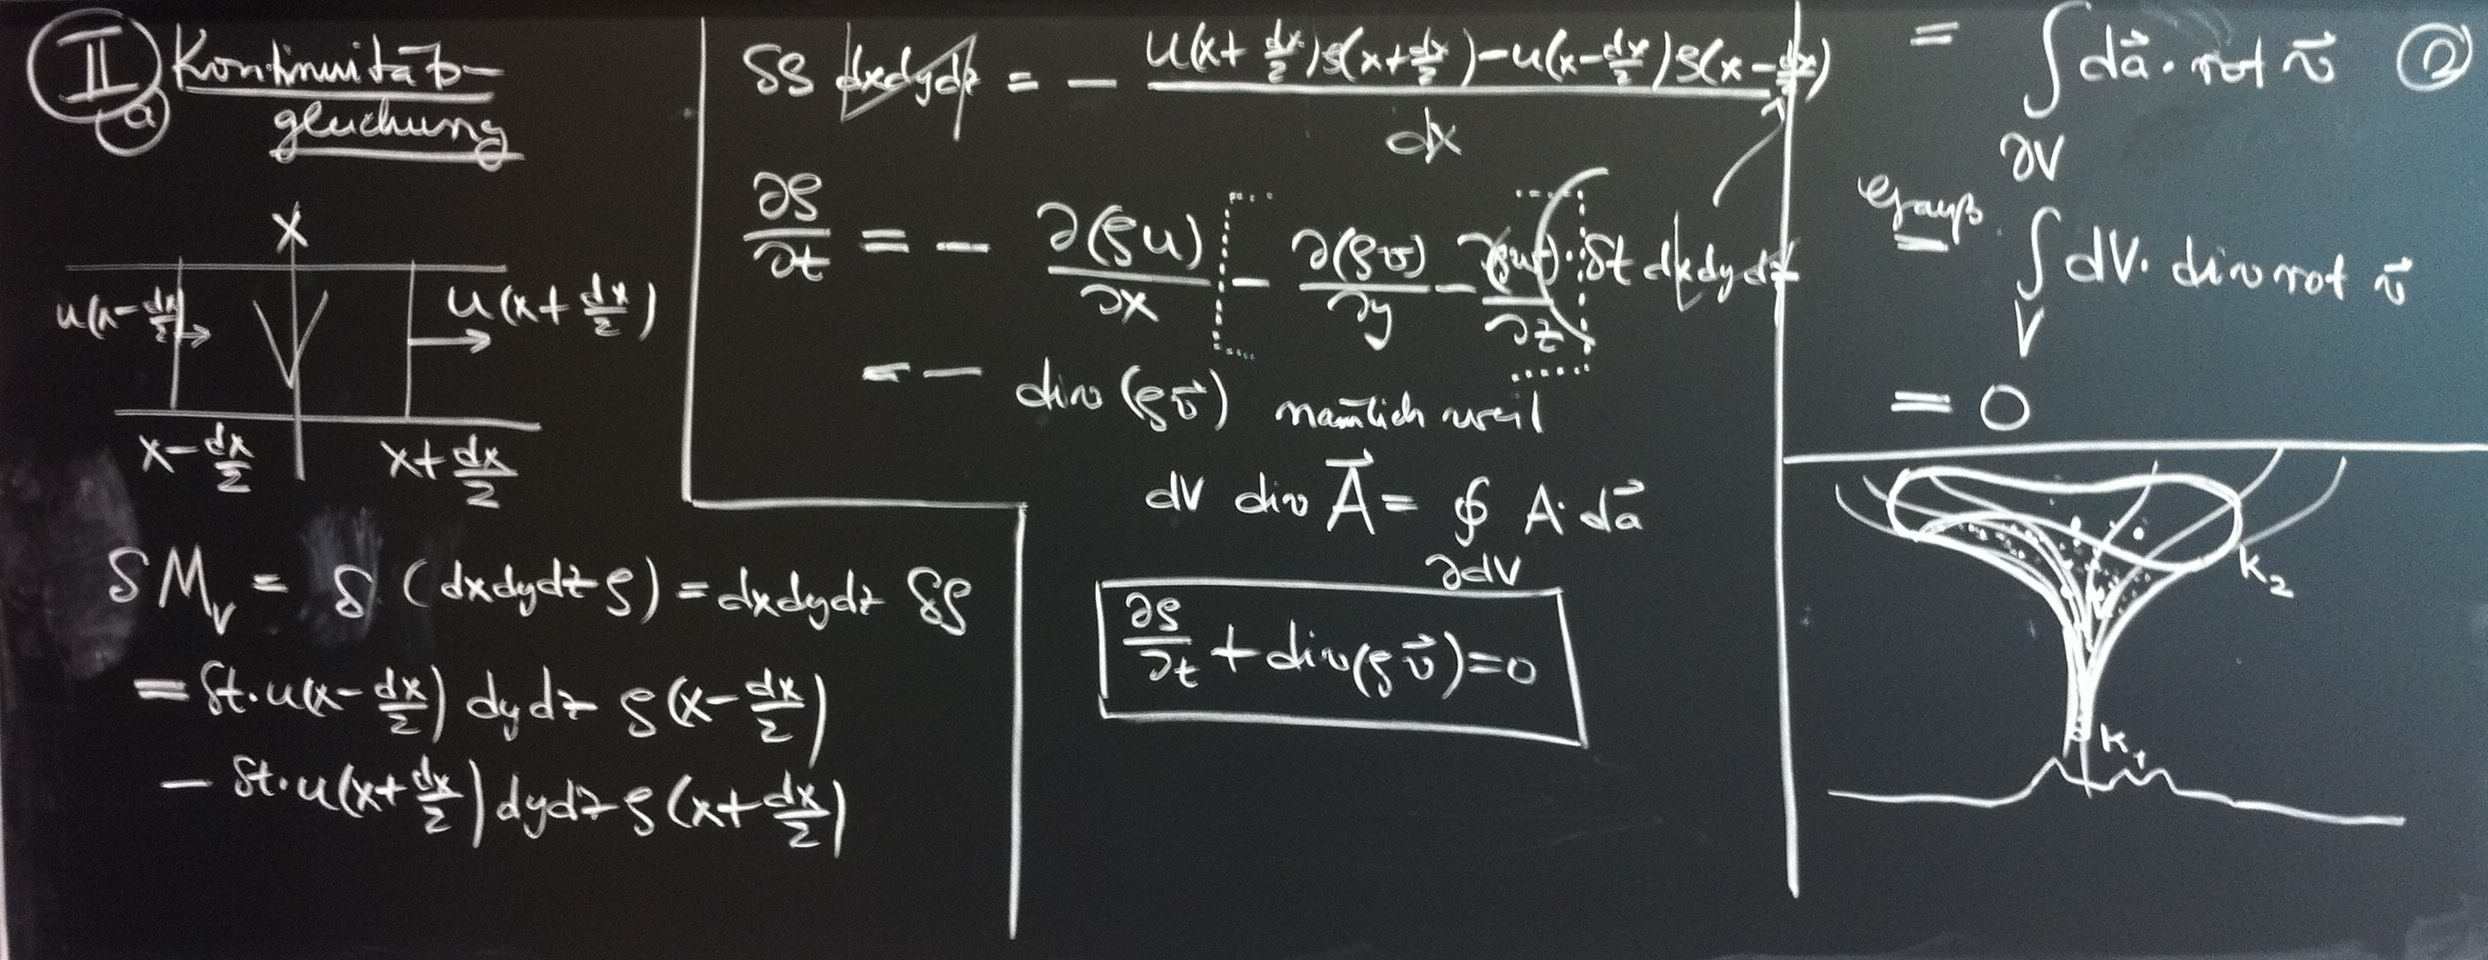 II a) Kontinuitäts-
gleichung
x
u(x-dx/2) V u(x+dx/2)
x-dx/2 x+dx/2
δM_V = δ(dxdydz ρ) = dxdydz δρ
= δt·u(x-dx/2) dydz ρ(x-dx/2)
- δt·u(x+dx/2) dydz ρ(x+dx/2)
δρ dxdydz = - (u(x+dx/2)ρ(x+dx/2)-u(x-dx/2)ρ(x-dx/2))/dx
∂ρ/∂t = - ∂(ρu)/∂x - ∂(ρv)/∂y - ∂(ρw)/∂z · δt dxdydz
= - div(ρv⃗) nämlich weil
dV div A⃗ = ∮ A·da⃗
∂dV
∂ρ/∂t + div(ρv⃗)=0
= ∫ da⃗ · rot v⃗ ②
∂V
Gauß
= ∫ dV · div rot v⃗
V
= 0
K₂
K₁